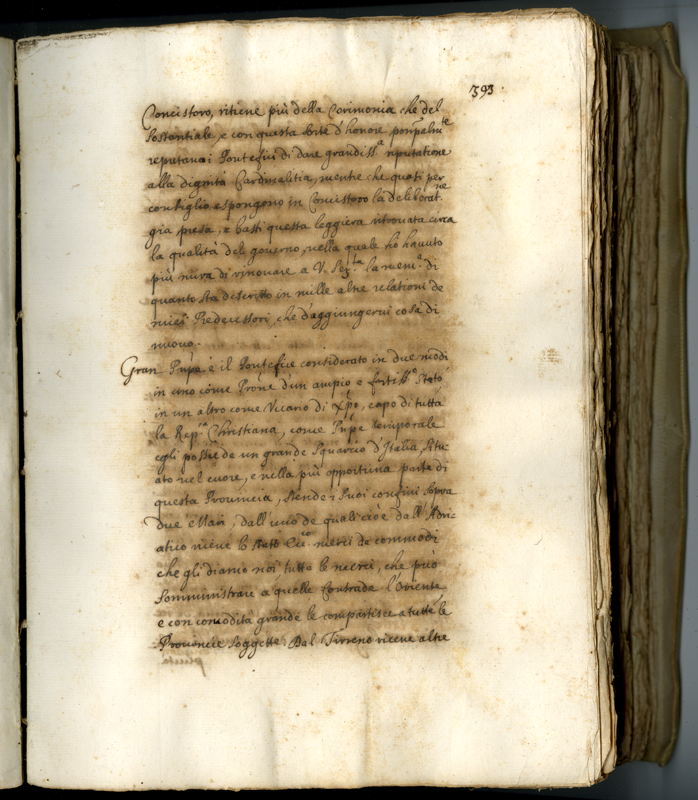 393.
Concistoro, ritiene più della Cerimonia che del
Sostantiale, e con questa sorte d'honore
reputano i Pontefici di dare grandiss.ª riputatione
alla dignità Cardinalitia, mentre che quasi per
consiglio espongono in Concistoro la deliberat.ne
già presa, e basti questa leggiera ritoccata circa
la qualità del governo, nella quale hò havuto
più mira di rinovare a V. Ser.tà la mem.ª di
quanto sta descritto in mille altre relationi de
miei Predecessori, che d'aggiungervi cosa di
nuovo.
Gran Prñpe è il Pontefice considerato in due modi
in uno come Prñe d'un ampio e fortiss.º Stato
in un altro come Vicario di Xpõ, capo di tutta
la Rep.ca Christiana, come Prñpe temporale
egli possiede un grande Squarcio d'Italia, situ-
ato nel cuore, e nella più opportuna parte di
questa Provincia, stende i suoi confini sopra
due Mari, dall'uno de quali cioè dall'Adri-
atico riceve lo Stato Ecc.co merci da commodi
che gli diamo noi, tutte le merci, che può
somministrare a quelle Contrade l'Oriente,
e con comodità grande le compartisce a tutte le
Provincie soggette; Dal Tirreno riceve altre